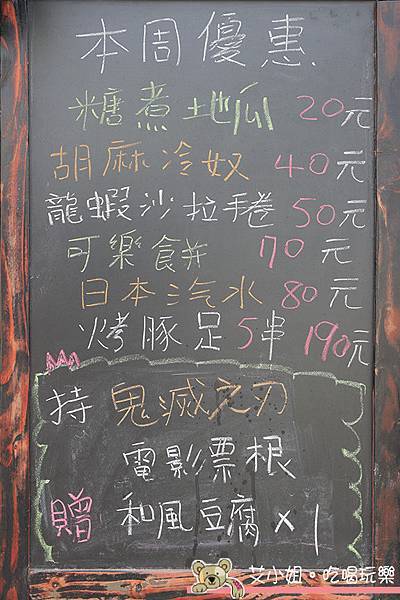 本周優惠
糖煮地瓜 20元
胡麻冷奴 40元
龍蝦沙拉手卷 50元
可樂餅 70元
日本汽水 80元
烤豚足5串 190元
持 鬼滅之刃
電影票根
贈 和風豆腐×1
艾小姐。吃喝玩樂